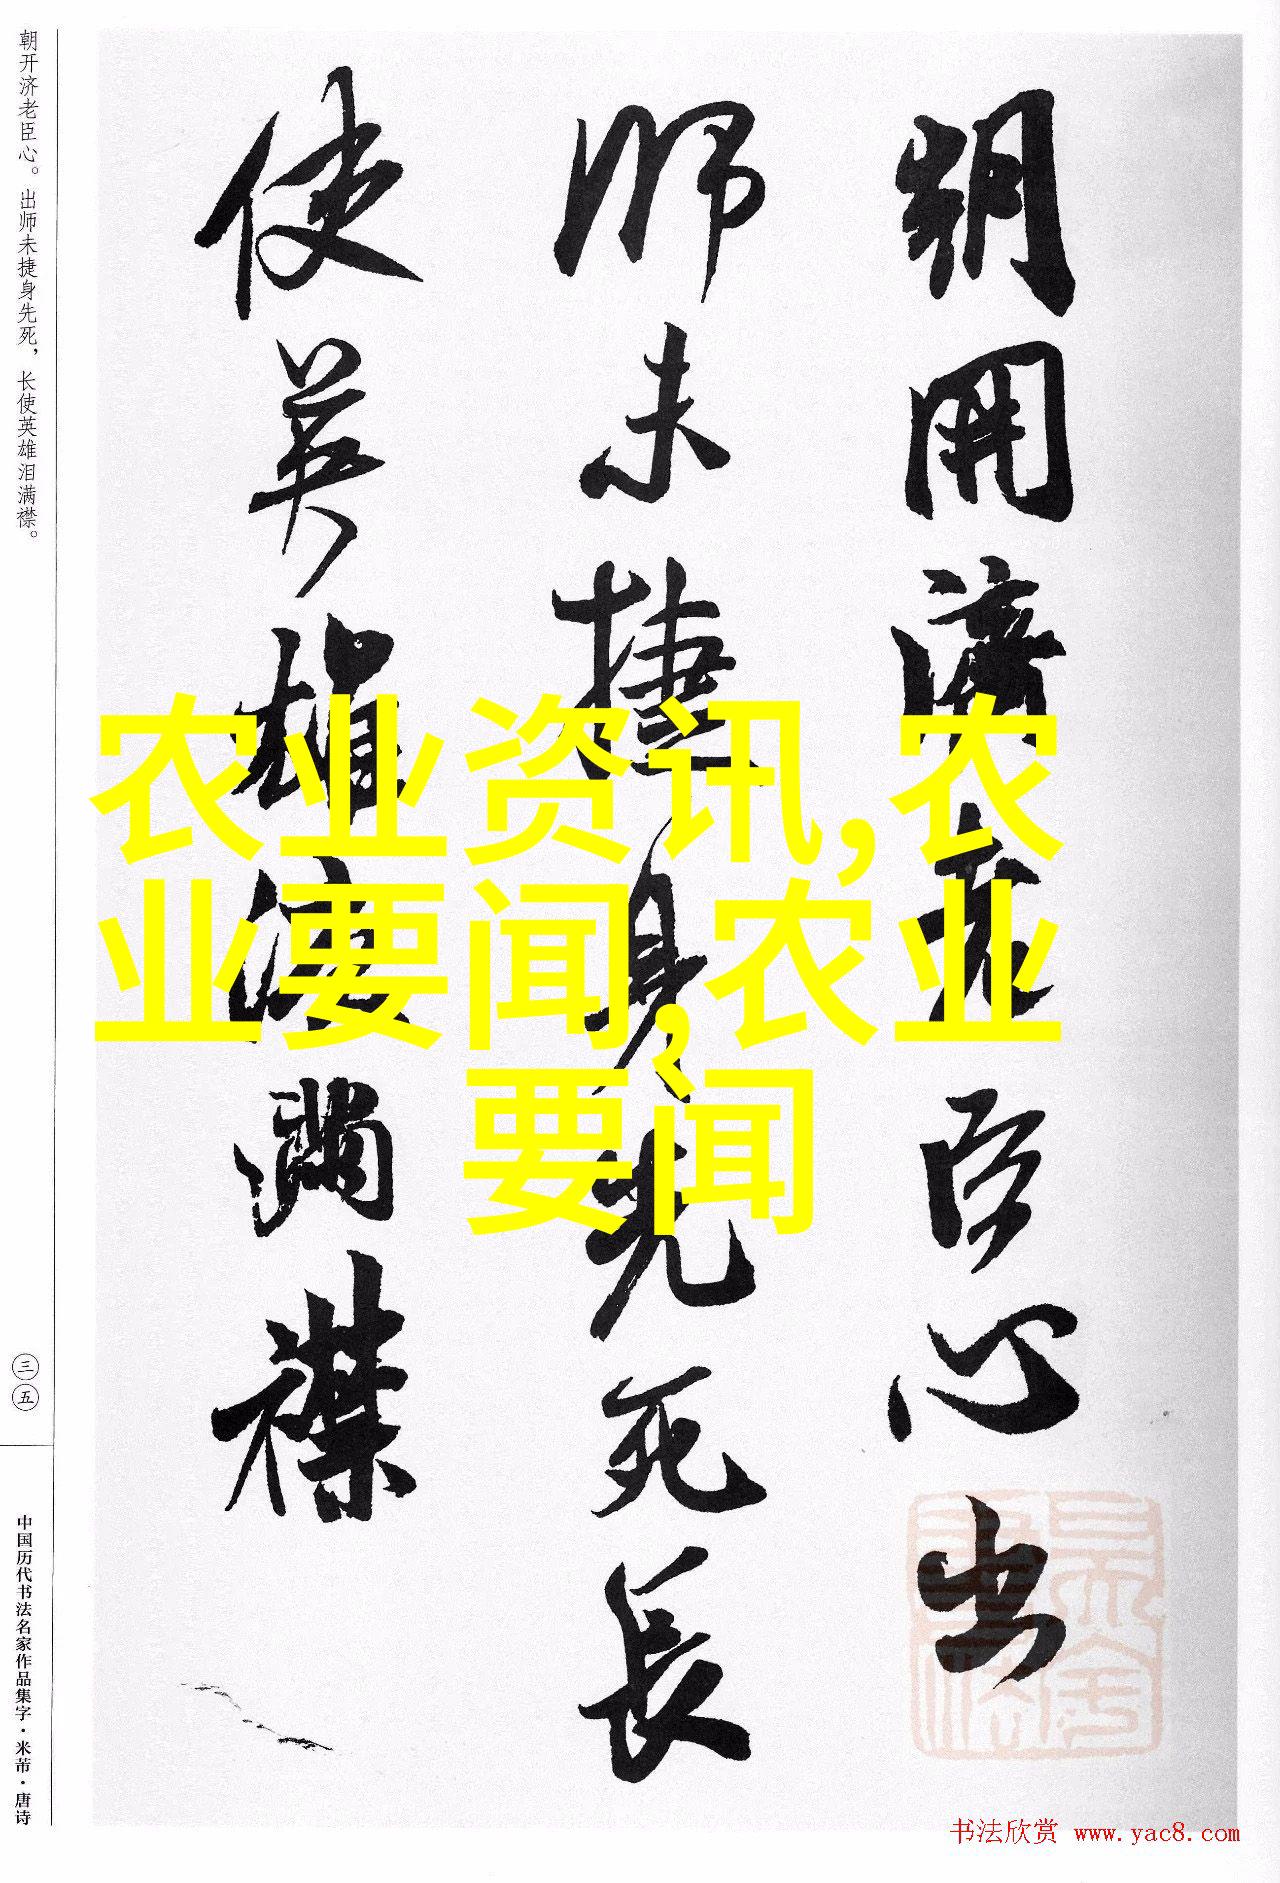 朝開濟老臣心出
師未捷身先死長
使英雄淚滿襟
朝开济老臣心。出师未捷身先死，长使英雄泪满襟。
三五
中国历代书法名家作品集字·米芾·唐诗
农业资讯,农
业要闻,农业
要闻
书法欣赏 www.yac8.com